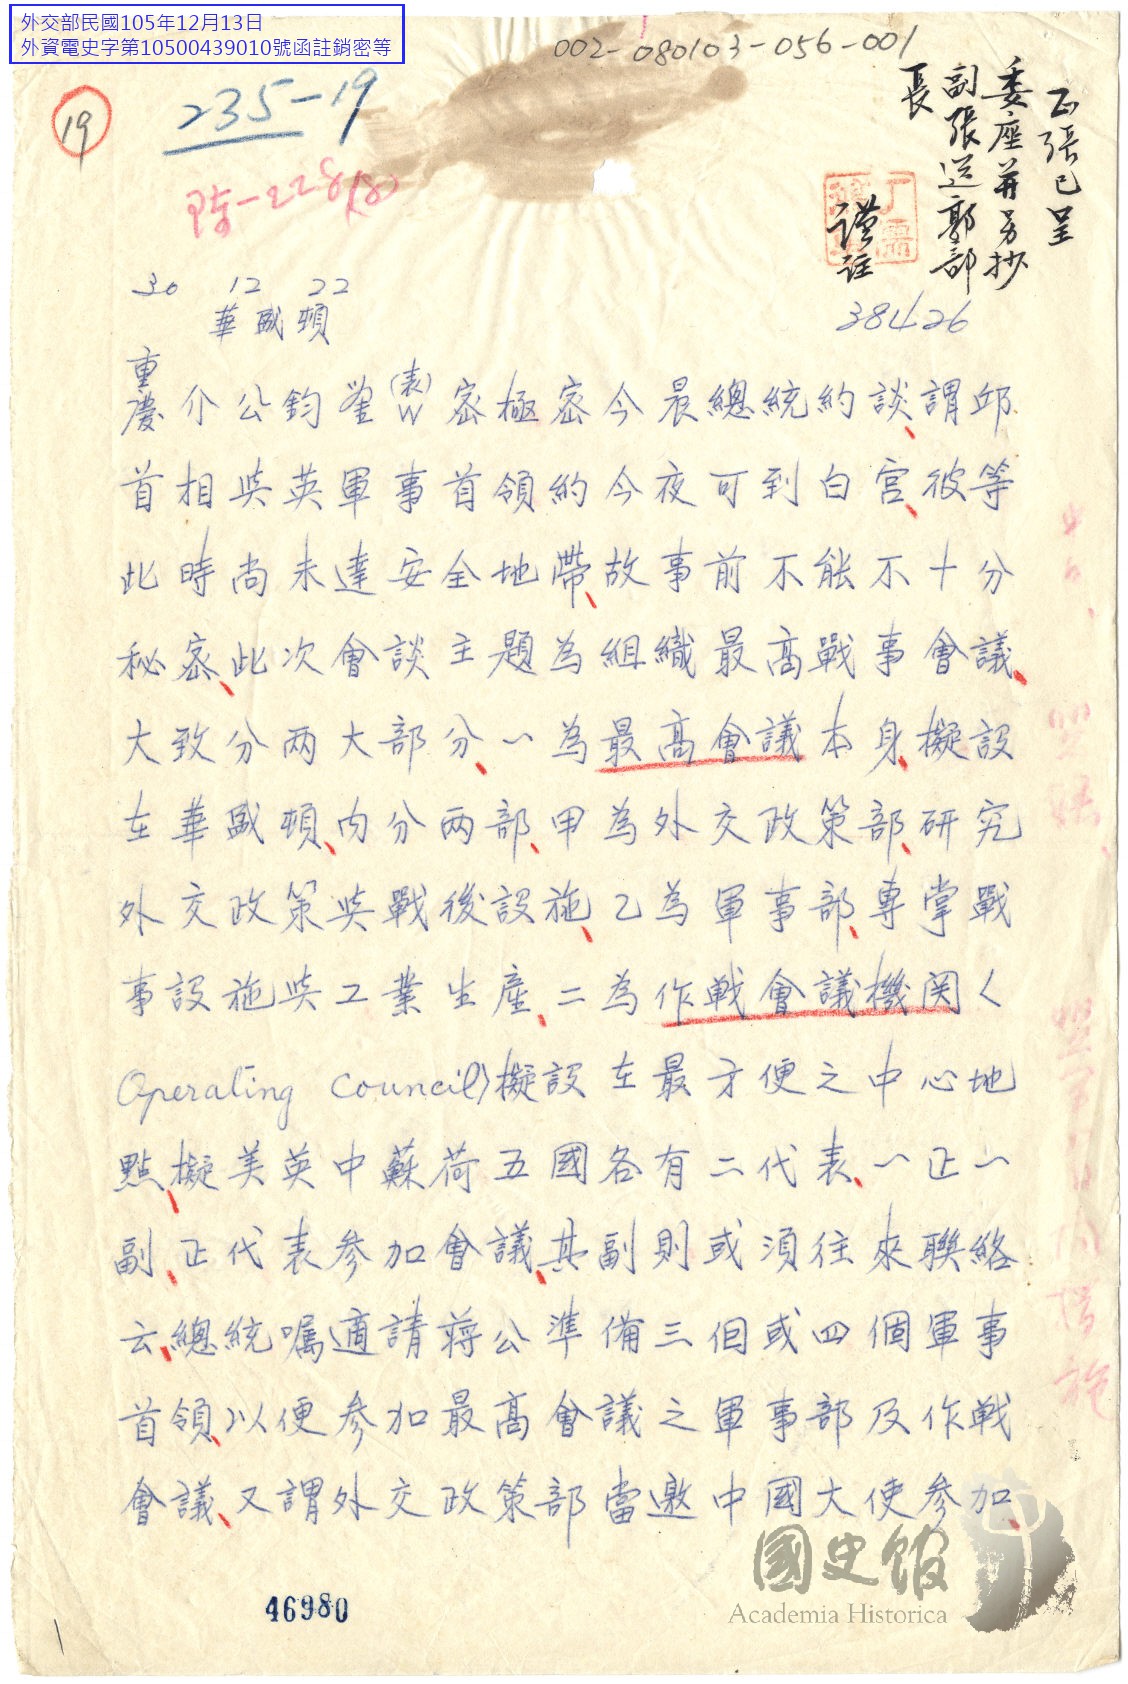 外交部民國105年12月13日
外資電史字第10500439010號函註銷密等
002-080103-056-001
19
235-19
正張已呈
委座並另抄
副張送郭部
長
謹註
38426
30 12 22
華盛頓
重慶介公鈞鉴(表)W密極密今晨總統約談、謂邱
首相與英軍事首領約今夜可到白宮、彼等
此時尚未達安全地帶、故事前不能不十分
秘密、此次會談主題為組織最高戰事會議、
大致分兩大部分、一為最高會議本身、擬設
在華盛頓、內分兩部、甲為外交政策部、研究
外交政策與戰後設施、乙為軍事部、專掌戰
事設施與工業生產、二為作戰會議機関(
Operating Council)擬設在最方便之中心地
點、擬美英中蘇荷五國各有二代表、一正一
副、正代表參加會議、其副則或須往來聯絡
云、總統嘱適請蔣公準備三個或四個軍事
首領、以便參加最高會議之軍事部及作戰
會議、又謂外交政策部當邀中國大使參加、
46980
國史館
Academia Historica